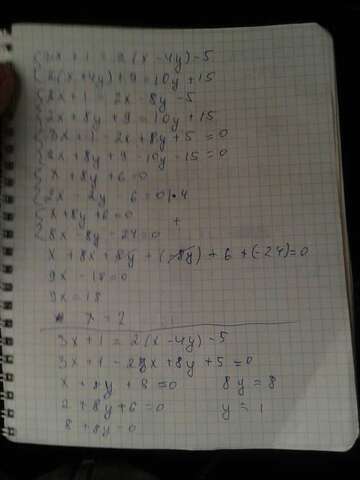 3x + 1 = 2(x - 4y) - 5
2(x + 4y) + 9 = 10y + 15
3x + 1 = 2x - 8y - 5
2x + 8y + 9 = 10y + 15
3x + 1 - 2x + 8y + 5 = 0
2x + 8y + 9 - 10y - 15 = 0
x + 8y + 6 = 0
2x - 2y - 6 = 0 | • 4
x + 8y + 6 = 0
+
8x - 8y - 24 = 0
x + 8x + 8y + (-8y) + 6 + (-24) = 0
9x - 18 = 0
9x = 18
x = 2
3x + 1 = 2(x - 4y) - 5
3x + 1 - 2x + 8y + 5 = 0
x + 8y + 8 = 0 8y = 8
2 + 8y + 6 = 0 y = 1
8 + 8y = 0